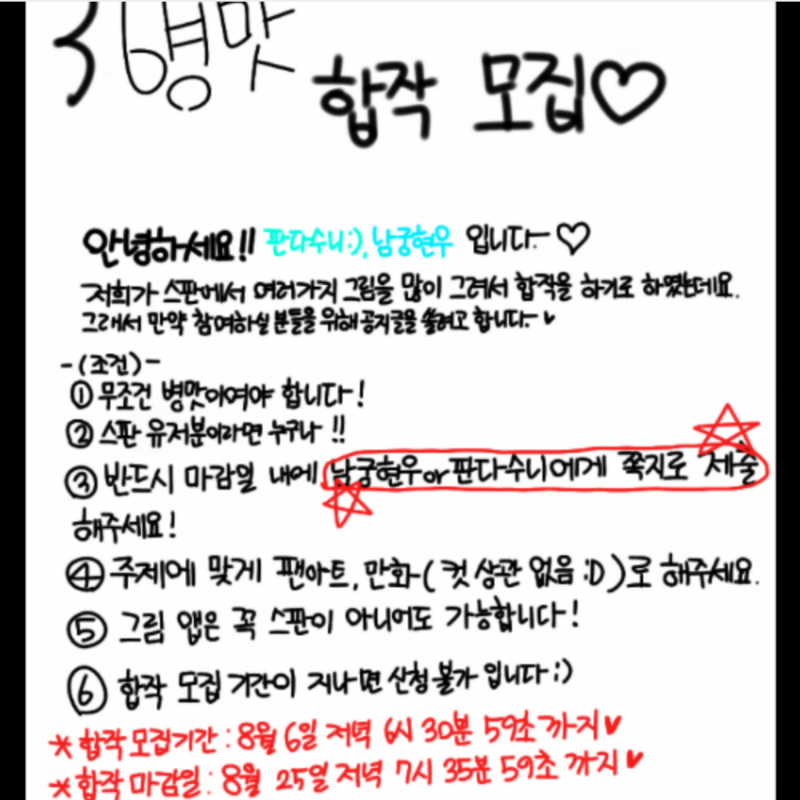 병맛
합작 모집♡
안녕하세요!! 판다수니:), 남궁현우 입니다~♡
저희가 스판에서 여러가지 그림을 많이 그려서 합작을 하기로 하였는데요.
그래서 만약 참여하실 분들을 위해 공지글을 쓸려고 합니다~♥
-(조건)-
① 무조건 병맛이여야 합니다!
② 스판 유저분이라면 누구나 !!
③ 반드시 마감일 내에 남궁현우or판다수니에게 쪽지로 제출
해주세요!
④ 주제에 맞게 팬아트, 만화(컷 상관 없음 :D)로 해주세요.
⑤ 그림 앱은 꼭 스판이 아니어도 가능합니다!
⑥ 합작 모집 기간이 지나면 신청 불가 입니다:)
*합작 모집기간 : 8월 6일 저녁 6시 30분 59초 까지♥
*합작 마감일 : 8월 25일 저녁 7시 35분 59초 까지♥